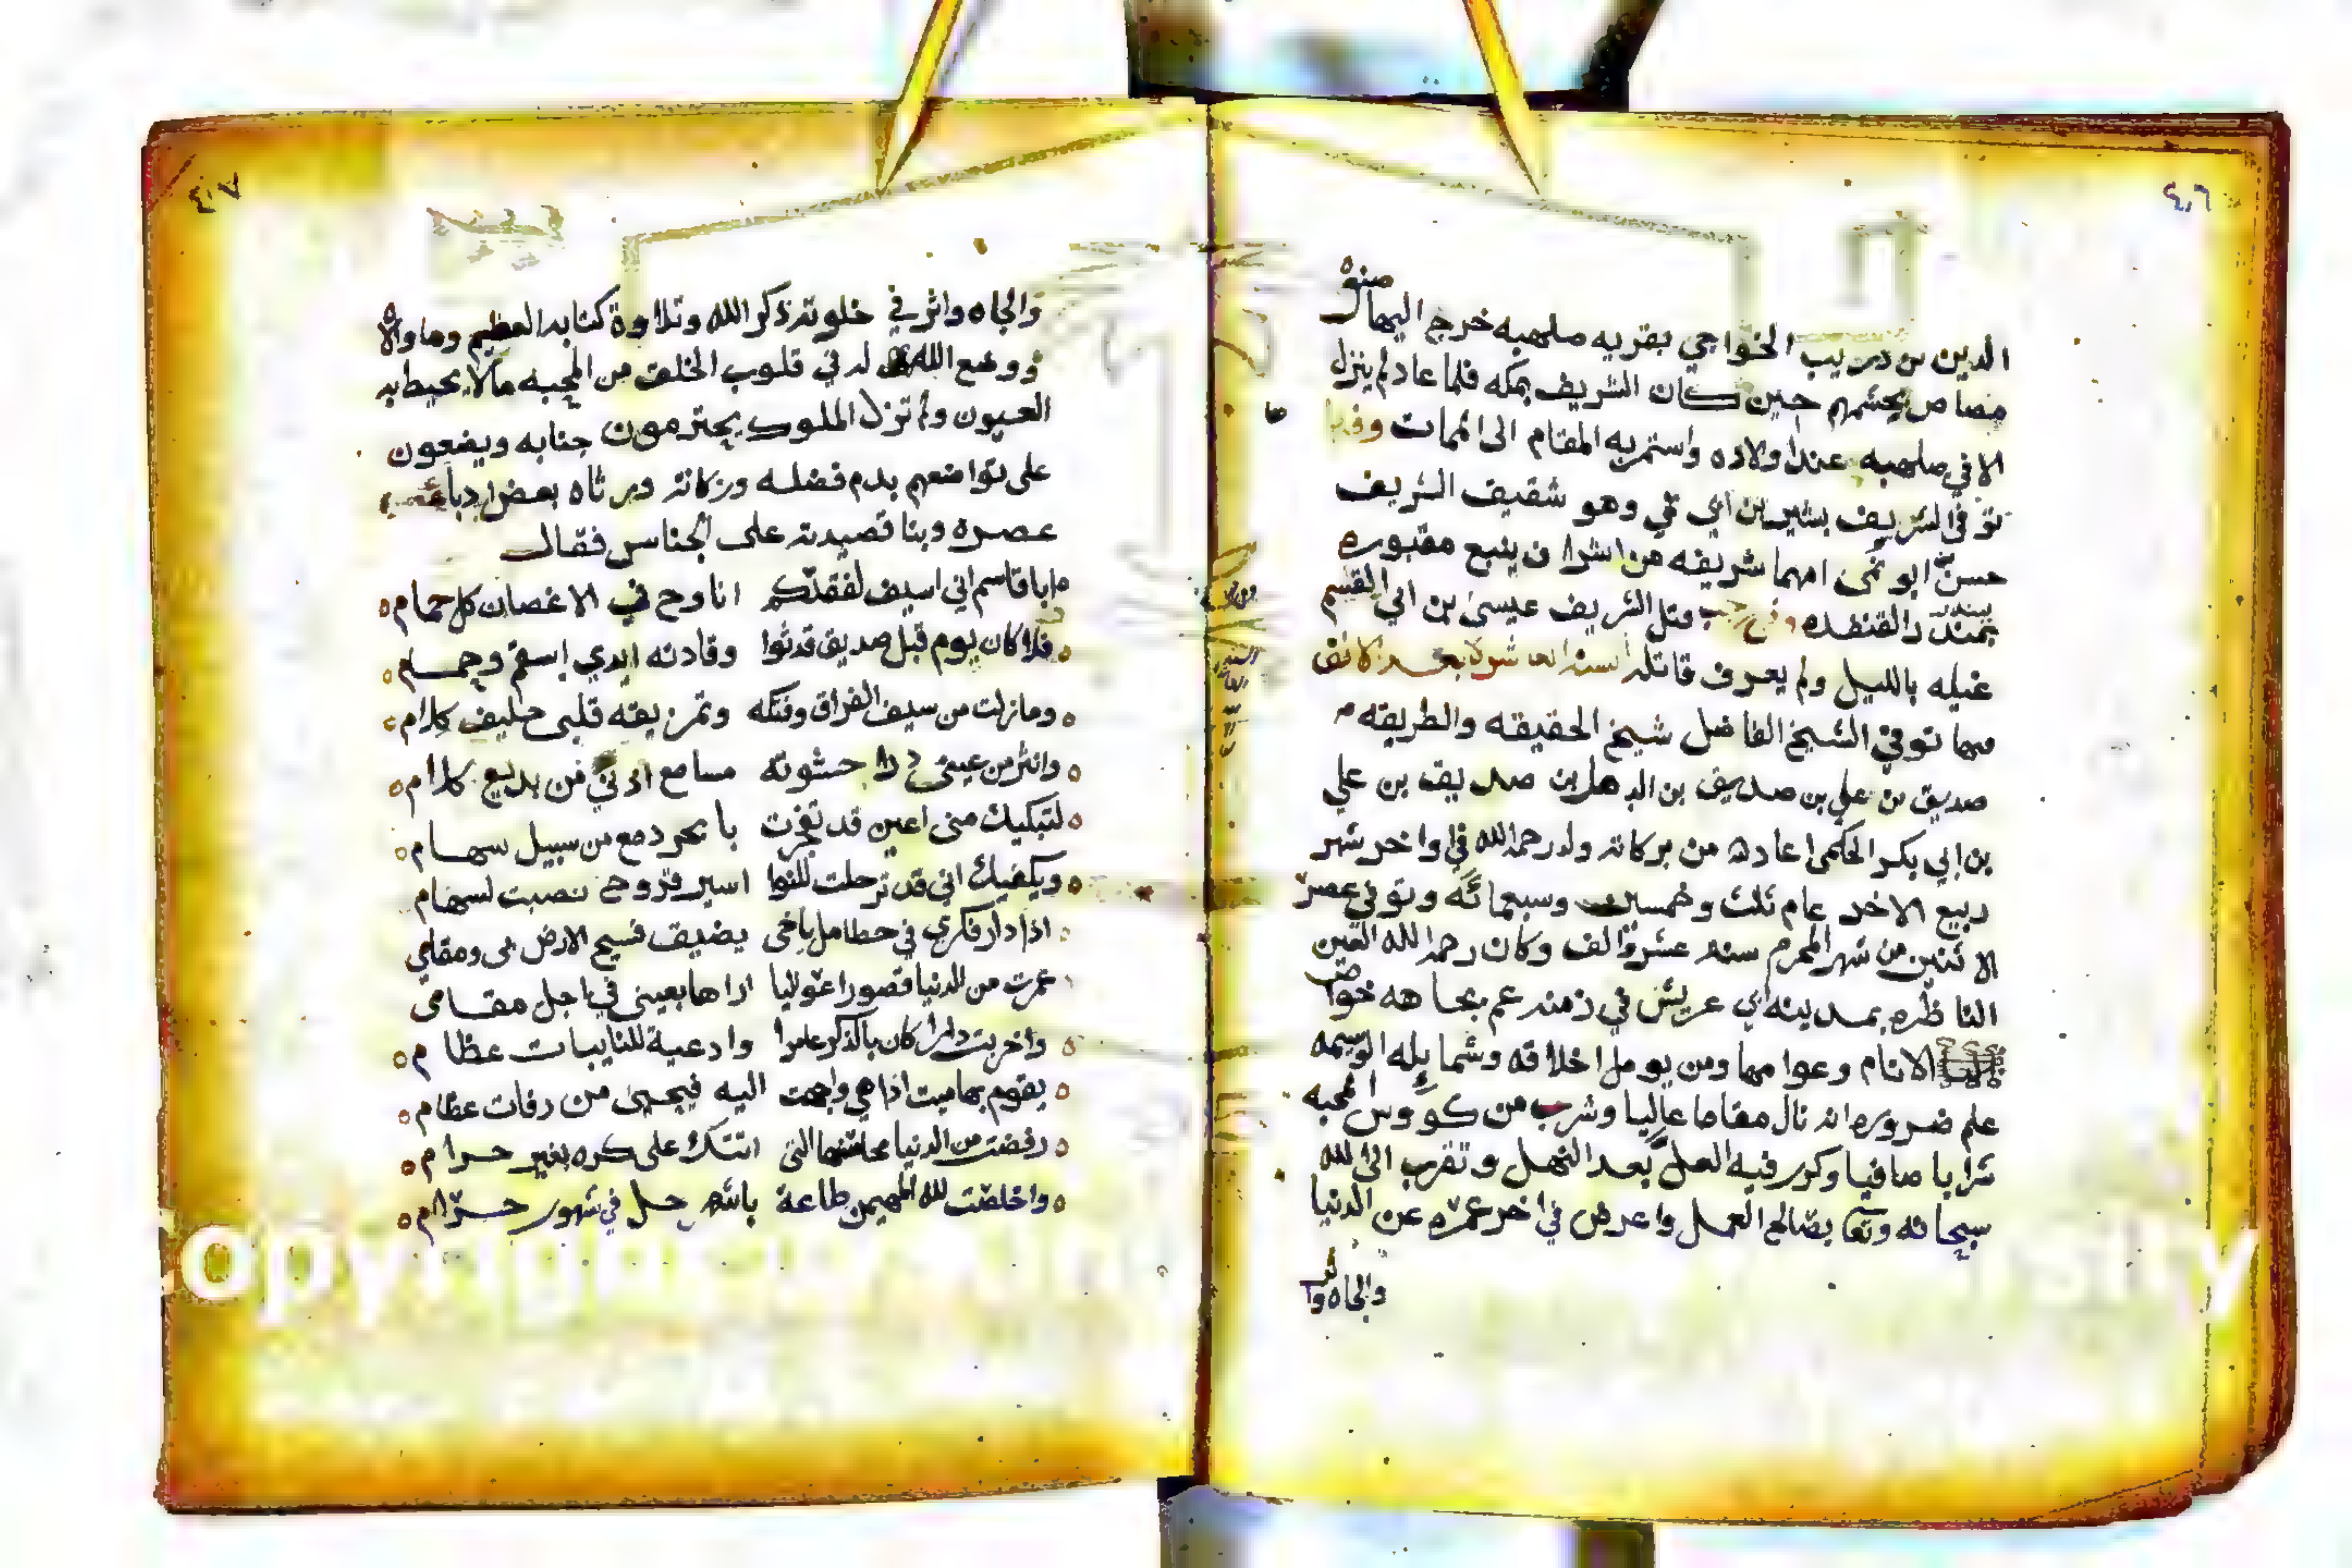 ٤٠٦
صنوه
الدين بن دريب الخواجي بقريه صلهبه خرج اليها
مصاص يحشمهم حين كان الشريف بمكه فلما عاد لم ينزل
الا في صلهبه عند اولاده واستمر به المقام الى الممات وفيها
توفي الشريف بشير بن ابي نمي وهو شقيف الشريف
حسن ابو نمى امهما شريفه من اشراف ينبع مقبوره
ببندر القنفده وفي رجب قتل الشريف عيسى بن ابي القسم
غيله بالليل ولم يعرف قاتله السنه العاشره بعد الالف
فيها توفي الشيخ الفاضل شيخ الحقيقه والطريقه
صديق بن علي بن صديق بن الدهل بن صديف بن علي
بن ابي بكر الحكمى اعاد من بركاته ولد رحمه الله في واخر شهر
ربيع الاخر عام ثلث وخمسين وسبعمائه وتوفي عصر
الاثنين من شهر المحرم سنه عشر والف وكان رحمه الله العين
الناظره بمدينه ابي عريش في زمنه عم بجاهه خواص
الانام وعوامها ومن يومل اخلاقه وشمايله الوسيمه
علم ضروره انه نال مقاما عاليا وشرب من كووس المحبه
شرابا صافيا وكرر فيه العل بعد النهل وتقرب الى الله
سبحانه وتعا بصالح العمل واعرض في اخر عمره عن الدنيا
والجاه وا
٤٠٧
والجاه واثر في خلوته ذكر الله وتلاوة كتابه العظيم وما والاه
ووضع الله له في قلوب الخلق من المحبه مالا يحيط به
العيون ولم تزل الملوك يحترمون جنابه ويضعون
على تواضعهم بدم فضله وزكاته ورثاه بعض ادبا
عصره وبنا قصيدته على الجناس فقال
ابا قاسم اني اسيف لفقدكم اناوح في الاغصان كل حمام
فلا كان يوم قبل صديق قد ثوا وقادته ايدي اسقم وحمام
وما زلت من سيف الفراق وفتكه وتمزيقه قلبى حليف كلام
وانثر من عيني حشوته مسامع اذني من بديع كلام
لتبكيك منى اعين قد تفجرت بابحر دمع من سبيل سهام
ويكفيك اني قد ترحلت للنوا اسير وروحي نصبت لسهام
اذا دار فكري في حطامل ياخى يضيف فسيح الارض بي ومقامي
عمرت من الدنيا قصورا عواليا اراها بعينى في اجل مقامى
واخربت دارا كان بالذكر عامرا وادعية للنايبات عظام
يقوم بها ميت اذا هي واجهت اليه فيحيى من رفات عظام
رفضت من الدنيا محاسنها التى اتتك على كره بغير حرام
واخلصت لله المهيمن طاعة باشهر حل في شهور حرام